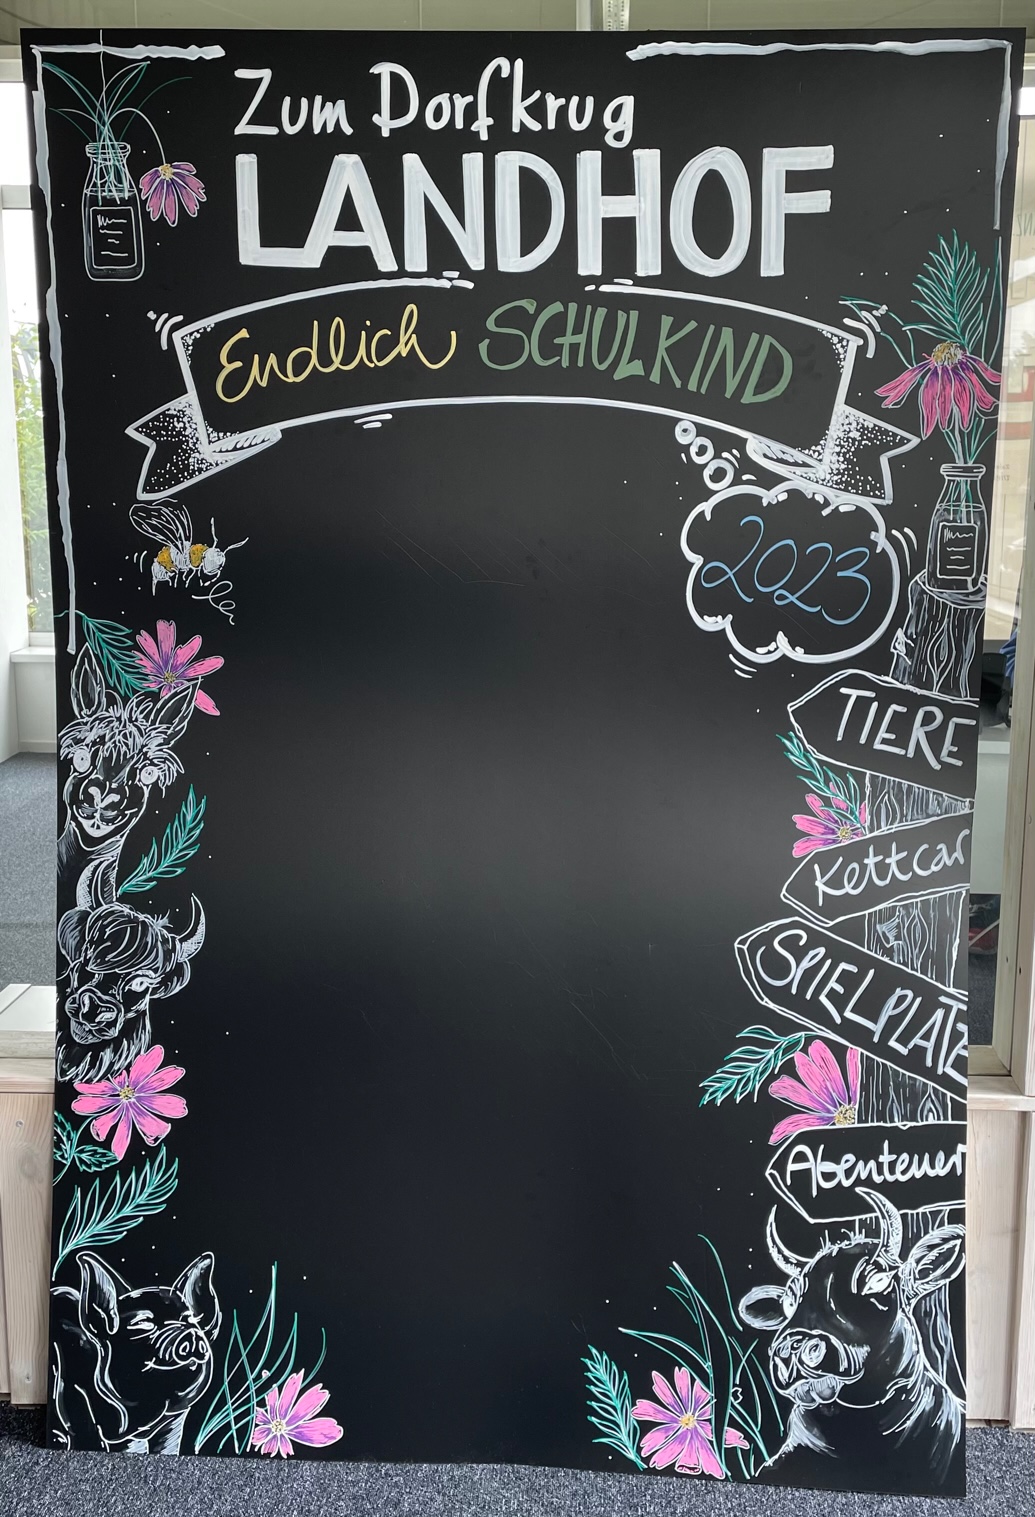 Zum Dorfkrug
LANDHOF
Endlich SCHULKIND
2023
TIERE
Kettcar
SPIELPLATZ
Abenteuer